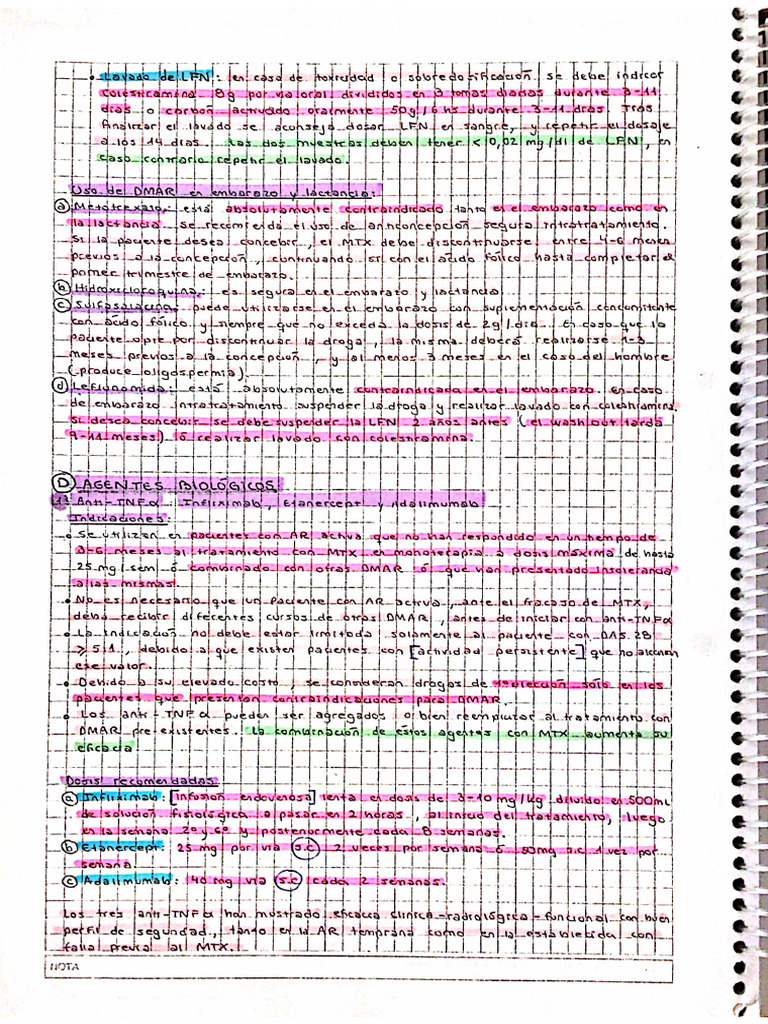 • Lavado de LFN: en caso de toxicidad o sobredosificación se debe indicar
colestiramina 8g por vía oral divididos en 3 tomas diarias durante 3-11
días o carbón activado oralmente 50g/6hs durante 3-11 días. Tras
finalizar el lavado se aconseja dosar LFN en sangre, y repetir el dosaje
a los 14 días. Las dos muestras deben tener < 0,02 mg/dl de LFN, en
caso contrario repetir el lavado.
Uso de DMAR en embarazo y lactancia:
ⓐ Metotrexato: está absolutamente contraindicado tanto en el embarazo como en
la lactancia. Se recomienda el uso de anticoncepción segura intratratamiento.
Si la paciente desea concebir, el MTX debe discontinuarse entre 4-6 meses
previos a la concepción, continuando sí con el ácido fólico hasta completar el
primer trimestre de embarazo.
ⓑ Hidroxicloroquina: es segura en el embarazo y lactancia
ⓒ Sulfasalacina: puede utilizarse en el embarazo con suplementación concomitante
con ácido fólico y siempre que no exceda la dosis de 2g/día. En caso que la
paciente opte por discontinuar la droga, la misma deberá realizarse 1-3
meses previos a la concepción, y al menos 3 meses en el caso del hombre
(produce oligospermia)
ⓓ Leflunomida: está absolutamente contraindicada en el embarazo. En caso
de embarazo intratratamiento suspender la droga y realizar lavado con colestiramina.
Si desea concebir se debe suspender la LFN 2 años antes (el wash out tarda
9-11 meses) ó realizar lavado con colestiramina.
Ⓓ AGENTES BIOLÓGICOS
1) Anti-TNFα: Infliximab, Etanercept y Adalimumab
Indicaciones:
• Se utilizan en pacientes con AR activa que no han respondido en un tiempo de
3-6 meses al tratamiento con MTX en monoterapia a dosis máxima de hasta
25 mg/sem ó combinado con otras DMAR ó que han presentado intolerancia
a las mismas.
• No es necesario que un paciente con AR activa, ante el fracaso de MTX,
deba recibir diferentes cursos de otras DMAR, antes de iniciar con anti-TNFα
• La indicación no debe estar limitada solamente al paciente con DAS 28
≥ 5,1, debido a que existen pacientes con [actividad persistente] que no alcanzan
ese valor.
• Debido a su elevado costo, se consideran drogas de 1º elección sólo en los
pacientes que presentan contraindicaciones para DMAR.
• Los anti-TNFα pueden ser agregados o bien reemplazar al tratamiento con
DMAR pre-existentes. La combinación de estos agentes con MTX aumenta su
eficacia
Dosis recomendadas
ⓐ Infliximab: [infusión endovenosa] lenta en dosis de 3-10 mg/kg diluido en 500ml
de solución fisiológica a pasar en 2 horas, al inicio del tratamiento, luego
en la semana 2º y 6º y posteriormente cada 8 semanas.
ⓑ Etanercept: 25 mg por vía s.c 2 veces por semana ó 50mg s.c 1 vez por
semana
ⓒ Adalimumab: 40 mg vía s.c cada 2 semanas.
Los tres anti-TNFα han mostrado eficacia clínica-radiológica-funcional con buen
perfil de seguridad, tanto en la AR temprana como en la establecida con
falla previa al MTX.
NOTA